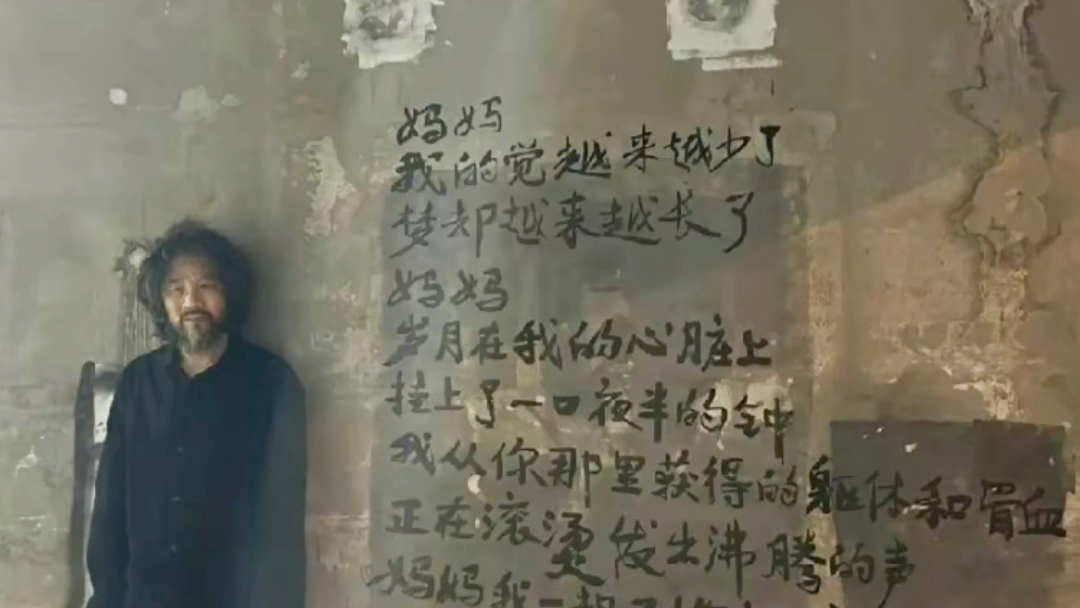 妈妈
我的觉越来越少了
梦却越来越长了
妈妈
岁月在我的心脏上
挂上了一口夜半的钟
我从你那里获得的躯体和胃血
正在滚烫发出沸腾的声
妈妈我一想